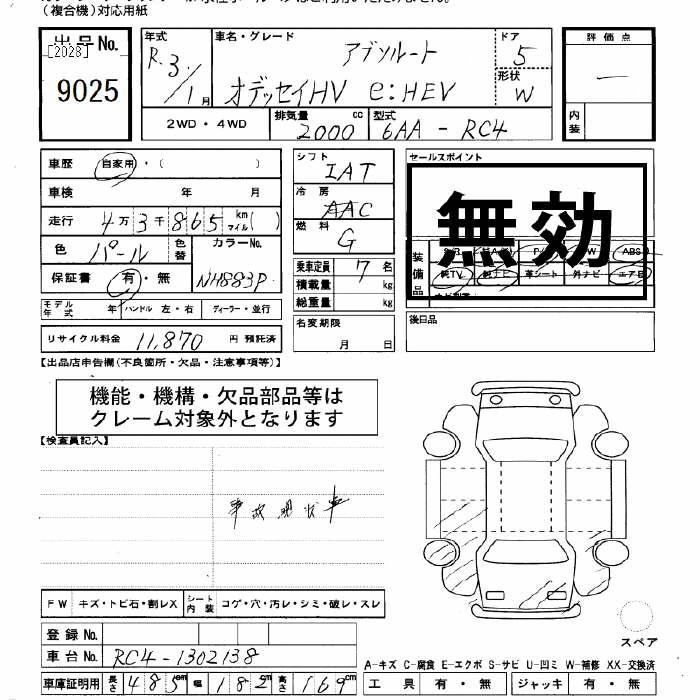 （複合機）対応用紙
出品No.
[2028]
9025
年式
R.3/1月
車名・グレード
アブソルート
オデッセイHV e:HEV
ドア
5
形状
W
評価点
―
内装
2WD・4WD
排気量
2000
cc
型式
6AA-RC4
車歴
自家用・(　)
車検　年　月
走行 4万3千865 km マイル( )
色
パール
色替
カラーNo.
NH883P
保証書
有・無
モデル年式　年
ハンドル 左・右
ディーラー・並行
リサイクル料金 11,870 円 預託済
シフト
IAT
冷房
AAC
燃料
G
乗車定員 7 名
積載量 kg
総重量 kg
名変期限
月　日
セールスポイント
無効
装備品
S/R
ABS
純TV
純ナビ
革シート
外ナビ
エアB
後日品
【出品店申告欄（不良箇所・欠品・注意事項等）】
機能・機構・欠品部品等は
クレーム対象外となります
【検査員記入】
事故現状車
FW
キズ・トビ石・割レX
シート内装
コゲ・穴・汚レ・シミ・破レ・スレ
登録No.
車台No. RC4-1302138
車庫証明用 長さ 485cm 幅 182cm 高さ 169cm
スペア
A-キズ C-腐食 E-エクボ S-サビ U-凹ミ W-補修 XX-交換済
工具 有・無 ジャッキ 有・無